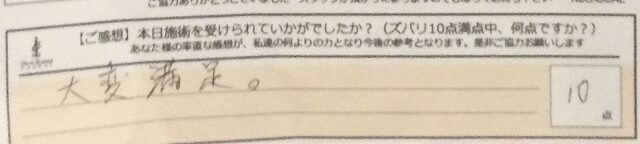 【ご感想】本日施術を受けられていかがでしたか？（ズバリ10点満点中、何点ですか？）
あなた様の率直な感想が、私達の何よりの力となり今後の参考となります。是非ご協力お願いします
大変満足。
10
点